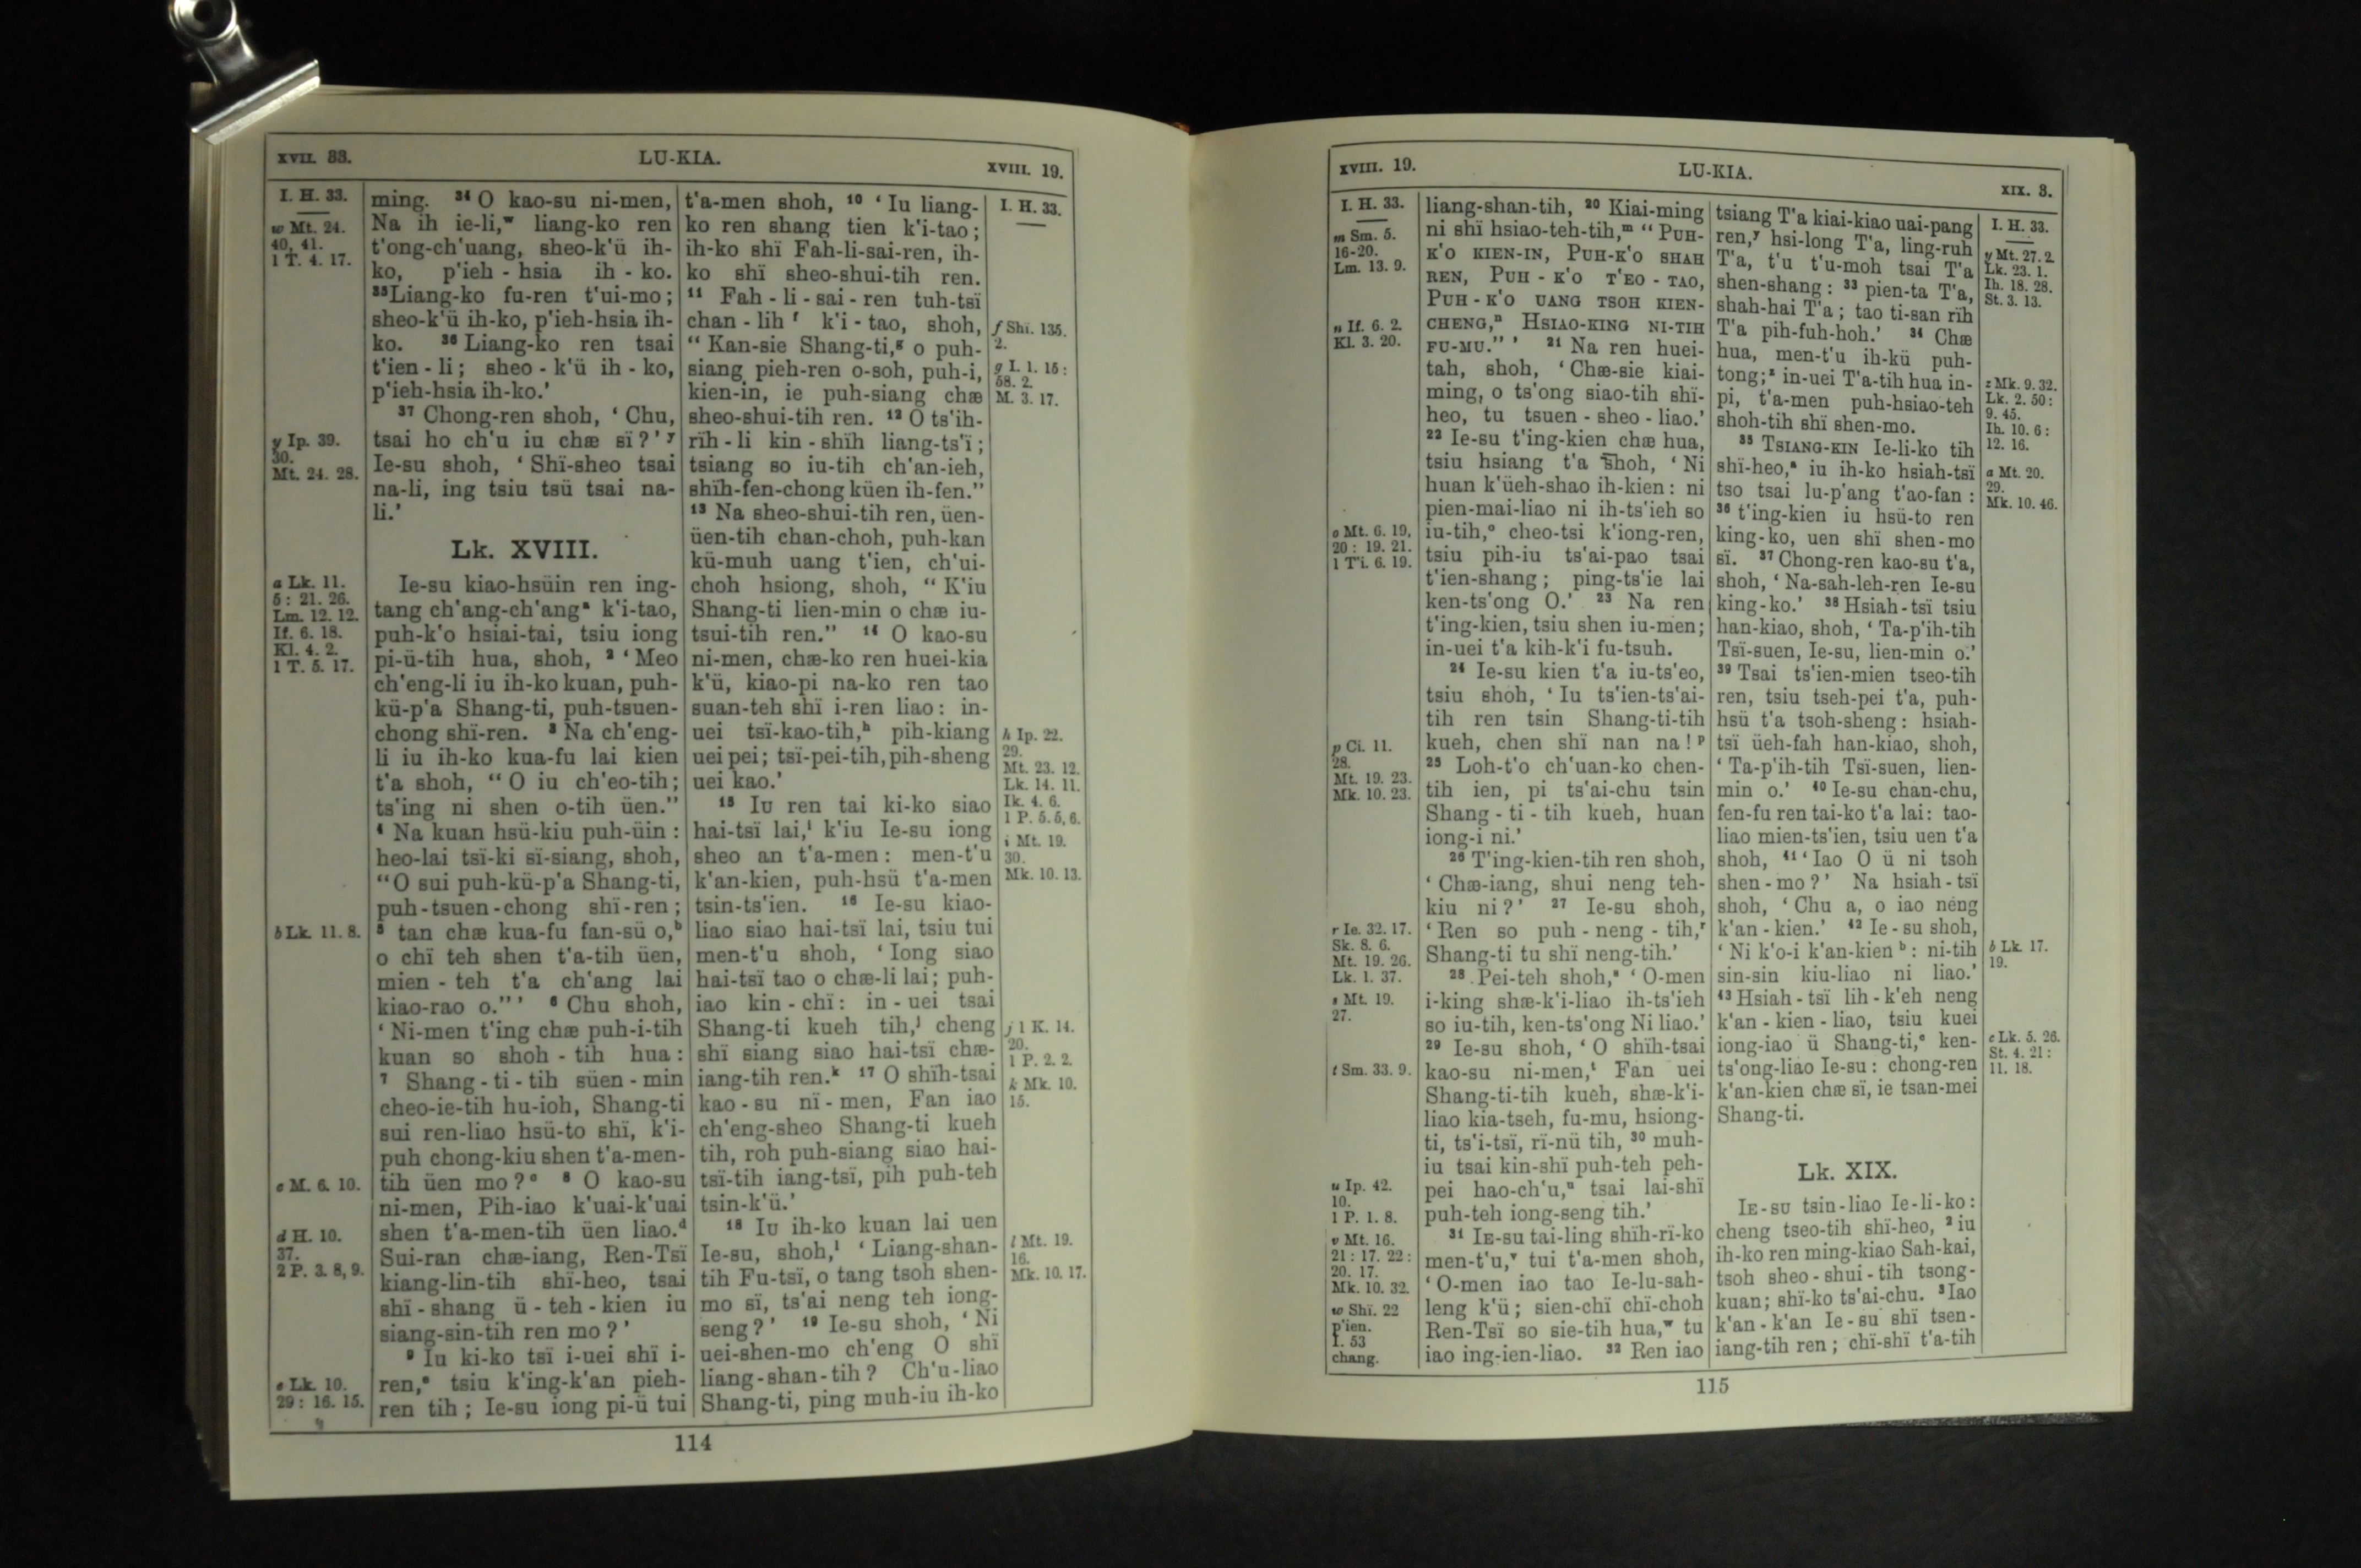 XVII. 33.
LU-KIA.
XVIII. 19.
I. H. 33.
w Mt. 24.
40, 41.
1 T. 4. 17.
y Ip. 39.
30.
Mt. 24. 28.
a Lk. 11.
5: 21. 26.
Lm. 12. 12.
If. 6. 18.
Kl. 4. 2.
1 T. 5. 17.
b Lk. 11. 8.
c M. 6. 10.
d H. 10.
37.
2 P. 3. 8, 9.
e Lk. 10.
29: 16. 15.
ming. 34 O kao-su ni-men,
Na ih ie-li,ʷ liang-ko ren
t'ong-ch'uang, sheo-k'ü ih-
ko, p'ieh-hsia ih-ko.
35 Liang-ko fu-ren t'ui-mo;
sheo-k'ü ih-ko, p'ieh-hsia ih-
ko. 36 Liang-ko ren tsai
t'ien-li; sheo-k'ü ih-ko,
p'ieh-hsia ih-ko.'
37 Chong-ren shoh, 'Chu,
tsai ho ch'u iu chæ sï?'ʸ
Ie-su shoh, 'Shï-sheo tsai
na-li, ing tsiu tsü tsai na-
li.'
Lk. XVIII.
Ie-su kiao-hsüin ren ing-
tang ch'ang-ch'angᵃ k'i-tao,
puh-k'o hsiai-tai, tsiu iong
pi-ü-tih hua, shoh, 2 'Meo
ch'eng-li iu ih-ko kuan, puh-
kü-p'a Shang-ti, puh-tsuen-
chong shï-ren. 3 Na ch'eng-
li iu ih-ko kua-fu lai kien
t'a shoh, "O iu ch'eo-tih;
ts'ing ni shen o-tih üen."
4 Na kuan hsü-kiu puh-üin:
heo-lai tsï-ki sï-siang, shoh,
"O sui puh-kü-p'a Shang-ti,
puh-tsuen-chong shï-ren;
5 tan chæ kua-fu fan-sü o,ᵇ
o chï teh shen t'a-tih üen,
mien-teh t'a ch'ang lai
kiao-rao o."' 6 Chu shoh,
'Ni-men t'ing chæ puh-i-tih
kuan so shoh-tih hua:
7 Shang-ti-tih süen-min
cheo-ie-tih hu-ioh, Shang-ti
sui ren-liao hsü-to shï, k'i-
puh chong-kiu shen t'a-men-
tih üen mo?ᶜ 8 O kao-su
ni-men, Pih-iao k'uai-k'uai
shen t'a-men-tih üen liao.ᵈ
Sui-ran chæ-iang, Ren-Tsï
kiang-lin-tih shï-heo, tsai
shï-shang ü-teh-kien iu
siang-sin-tih ren mo?'
9 Iu ki-ko tsï i-uei shï i-
ren,ᵉ tsiu k'ing-k'an pieh-
ren tih; Ie-su iong pi-ü tui
t'a-men shoh, 10 'Iu liang-
ko ren shang tien k'i-tao;
ih-ko shï Fah-li-sai-ren, ih-
ko shï sheo-shui-tih ren.
11 Fah-li-sai-ren tuh-tsï
chan-lihᶠ k'i-tao, shoh,
"Kan-sie Shang-ti,ᵍ o puh-
siang pieh-ren o-soh, puh-i,
kien-in, ie puh-siang chæ
sheo-shui-tih ren. 12 O ts'ih-
rïh-li kin-shïh liang-ts'ï;
tsiang so iu-tih ch'an-ieh,
shïh-fen-chong küen ih-fen."
13 Na sheo-shui-tih ren, üen-
üen-tih chan-choh, puh-kan
kü-muh uang t'ien, ch'ui-
choh hsiong, shoh, "K'iu
Shang-ti lien-min o chæ iu-
tsui-tih ren." 14 O kao-su
ni-men, chæ-ko ren huei-kia
k'ü, kiao-pi na-ko ren tao
suan-teh shï i-ren liao: in-
uei tsï-kao-tih,ʰ pih-kiang
uei pei; tsï-pei-tih, pih-sheng
uei kao.'
15 Iu ren tai ki-ko siao
hai-tsï lai,ⁱ k'iu Ie-su iong
sheo an t'a-men: men-t'u
k'an-kien, puh-hsü t'a-men
tsin-ts'ien. 16 Ie-su kiao-
liao siao hai-tsï lai, tsiu tui
men-t'u shoh, 'Iong siao
hai-tsï tao o chæ-li lai; puh-
iao kin-chï: in-uei tsai
Shang-ti kueh tih,ʲ cheng
shï siang siao hai-tsï chæ-
iang-tih ren.ᵏ 17 O shïh-tsai
kao-su nï-men, Fan iao
ch'eng-sheo Shang-ti kueh
tih, roh puh-siang siao hai-
tsï-tih iang-tsï, pih puh-teh
tsin-k'ü.'
18 Iu ih-ko kuan lai uen
Ie-su, shoh,ˡ 'Liang-shan-
tih Fu-tsï, o tang tsoh shen-
mo sï, ts'ai neng teh iong-
seng?' 19 Ie-su shoh, 'Ni
uei-shen-mo ch'eng O shï
liang-shan-tih? Ch'u-liao
Shang-ti, ping muh-iu ih-ko
I. H. 33.
f Shï. 135.
2.
g I. 1. 15:
58. 2.
M. 3. 17.
h Ip. 22.
29.
Mt. 23. 12.
Lk. 14. 11.
Ik. 4. 6.
1 P. 5. 5, 6.
i Mt. 19.
30.
Mk. 10. 13.
j 1 K. 14.
20.
1 P. 2. 2.
k Mk. 10.
15.
l Mt. 19.
16.
Mk. 10. 17.
114
XVIII. 19.
LU-KIA.
XIX. 3.
I. H. 33.
m Sm. 5.
16-20.
Lm. 13. 9.
n If. 6. 2.
Kl. 3. 20.
o Mt. 6. 19,
20: 19. 21.
1 T'i. 6. 19.
p Ci. 11.
28.
Mt. 19. 23.
Mk. 10. 23.
r Ie. 32. 17.
Sk. 8. 6.
Mt. 19. 26.
Lk. 1. 37.
s Mt. 19.
27.
t Sm. 33. 9.
u Ip. 42.
10.
1 P. 1. 8.
v Mt. 16.
21: 17. 22:
20. 17.
Mk. 10. 32.
w Shï. 22
p'ien.
I. 53
chang.
liang-shan-tih, 20 Kiai-ming
ni shï hsiao-teh-tih,ᵐ "PUH-
K'O KIEN-IN, PUH-K'O SHAH
REN, PUH-K'O T'EO-TAO,
PUH-K'O UANG TSOH KIEN-
CHENG,ⁿ HSIAO-KING NI-TIH
FU-MU."' 21 Na ren huei-
tah, shoh, 'Chæ-sie kiai-
ming, o ts'ong siao-tih shï-
heo, tu tsuen-sheo-liao.'
22 Ie-su t'ing-kien chæ hua,
tsiu hsiang t'a shoh, 'Ni
huan k'üeh-shao ih-kien: ni
pien-mai-liao ni ih-ts'ieh so
iu-tih,ᵒ cheo-tsi k'iong-ren,
tsiu pih-iu ts'ai-pao tsai
t'ien-shang; ping-ts'ie lai
ken-ts'ong O.' 23 Na ren
t'ing-kien, tsiu shen iu-men;
in-uei t'a kih-k'i fu-tsuh.
24 Ie-su kien t'a iu-ts'eo,
tsiu shoh, 'Iu ts'ien-ts'ai-
tih ren tsin Shang-ti-tih
kueh, chen shï nan na!ᵖ
25 Loh-t'o ch'uan-ko chen-
tih ien, pi ts'ai-chu tsin
Shang-ti-tih kueh, huan
iong-i ni.'
26 T'ing-kien-tih ren shoh,
'Chæ-iang, shui neng teh-
kiu ni?' 27 Ie-su shoh,
'Ren so puh-neng-tih,ʳ
Shang-ti tu shï neng-tih.'
28 Pei-teh shoh,ˢ 'O-men
i-king shæ-k'i-liao ih-ts'ieh
so iu-tih, ken-ts'ong Ni liao.'
29 Ie-su shoh, 'O shïh-tsai
kao-su ni-men,ᵗ Fan uei
Shang-ti-tih kueh, shæ-k'i-
liao kia-tseh, fu-mu, hsiong-
ti, ts'i-tsï, rï-nü tih, 30 muh-
iu tsai kin-shï puh-teh peh-
pei hao-ch'u,ᵘ tsai lai-shï
puh-teh iong-seng tih.'
31 IE-SU tai-ling shïh-rï-ko
men-t'u,ᵛ tui t'a-men shoh,
'O-men iao tao Ie-lu-sah-
leng k'ü; sien-chï chï-choh
Ren-Tsï so sie-tih hua,ʷ tu
iao ing-ien-liao. 32 Ren iao
tsiang T'a kiai-kiao uai-pang
ren,ʸ hsi-long T'a, ling-ruh
T'a, t'u t'u-moh tsai T'a
shen-shang: 33 pien-ta T'a,
shah-hai T'a; tao ti-san rïh
T'a pih-fuh-hoh.' 34 Chæ
hua, men-t'u ih-kü puh-
tong;ᶻ in-uei T'a-tih hua in-
pi, t'a-men puh-hsiao-teh
shoh-tih shï shen-mo.
35 TSIANG-KIN Ie-li-ko tih
shï-heo,ᵃ iu ih-ko hsiah-tsï
tso tsai lu-p'ang t'ao-fan:
36 t'ing-kien iu hsü-to ren
king-ko, uen shï shen-mo
sï. 37 Chong-ren kao-su t'a,
shoh, 'Na-sah-leh-ren Ie-su
king-ko.' 38 Hsiah-tsï tsiu
han-kiao, shoh, 'Ta-p'ih-tih
Tsï-suen, Ie-su, lien-min o.'
39 Tsai ts'ien-mien tseo-tih
ren, tsiu tseh-pei t'a, puh-
hsü t'a tsoh-sheng: hsiah-
tsï üeh-fah han-kiao, shoh,
'Ta-p'ih-tih Tsï-suen, lien-
min o.' 40 Ie-su chan-chu,
fen-fu ren tai-ko t'a lai: tao-
liao mien-ts'ien, tsiu uen t'a
shoh, 41 'Iao O ü ni tsoh
shen-mo?' Na hsiah-tsï
shoh, 'Chu a, o iao neng
k'an-kien.' 42 Ie-su shoh,
'Ni k'o-i k'an-kienᵇ: ni-tih
sin-sin kiu-liao ni liao.'
43 Hsiah-tsï lih-k'eh neng
k'an-kien-liao, tsiu kuei
iong-iao ü Shang-ti,ᶜ ken-
ts'ong-liao Ie-su: chong-ren
k'an-kien chæ sï, ie tsan-mei
Shang-ti.
Lk. XIX.
IE-SU tsin-liao Ie-li-ko:
cheng tseo-tih shï-heo, 2 iu
ih-ko ren ming-kiao Sah-kai,
tsoh sheo-shui-tih tsong-
kuan; shï-ko ts'ai-chu. 3 Iao
k'an-k'an Ie-su shï tsen-
iang-tih ren; chï-shï t'a-tih
I. H. 33.
y Mt. 27. 2.
Lk. 23. 1.
Ih. 18. 28.
St. 3. 13.
z Mk. 9. 32.
Lk. 2. 50:
9. 45.
Ih. 10. 6:
12. 16.
a Mt. 20.
29.
Mk. 10. 46.
b Lk. 17.
19.
c Lk. 5. 26.
St. 4. 21:
11. 18.
115